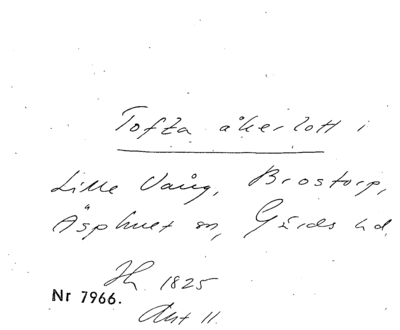 Tofta åkerlott i
Lille Vång, Brostorp,
Äsphult sn, Gärds hd.
Hh 1825
Nr 7966.
Akt 11.